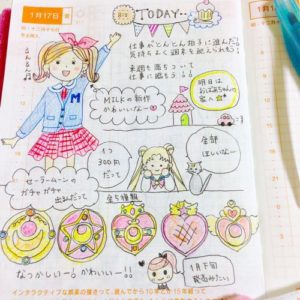 1月17日
TODAY
仕事がとんとん拍子に進んだ!!
気持ちよく週末を迎えられる!
来週も落ちついて
仕事に臨もう!!
るんるん
M
MILKの新作
かわいいな〜
明日は
おばあちゃんの
家へ
1コ
300円
だって
全部
ほしいな〜
セーラームーンの
ガチャガチャ
出るんだって
全5種類
なつかしいー!かわいいー!!
1月下旬
発売みたい!
1月1